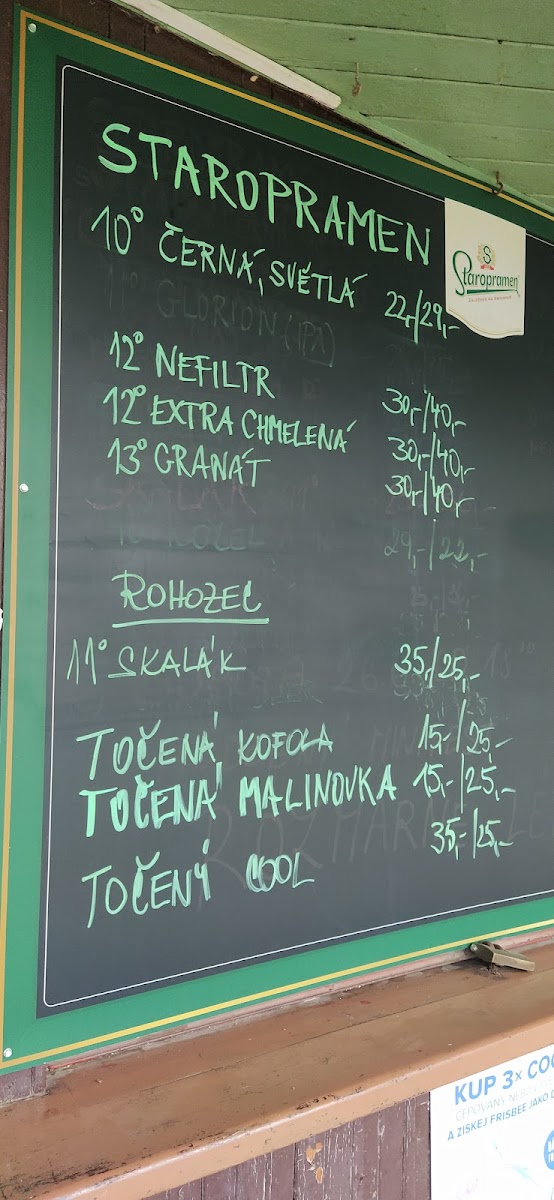 STAROPRAMEN
10° ČERNÁ, SVĚTLÁ 22,-/29,-
Staropramen
12° NEFILTR 30,-/40,-
12° EXTRA CHMELENÁ 30,-/40,-
13° GRANÁT 30,-/40,-
29,-/22,-
ROHOZEC
11° SKALÁK 35,-/25,-
TOČENÁ KOFOLA 15,-/25,-
TOČENÁ MALINOVKA 15,-/25,-
TOČENÝ COOL 35,-/25,-
KUP 3x
A ZÍSKEJ FRISBEE JAKO